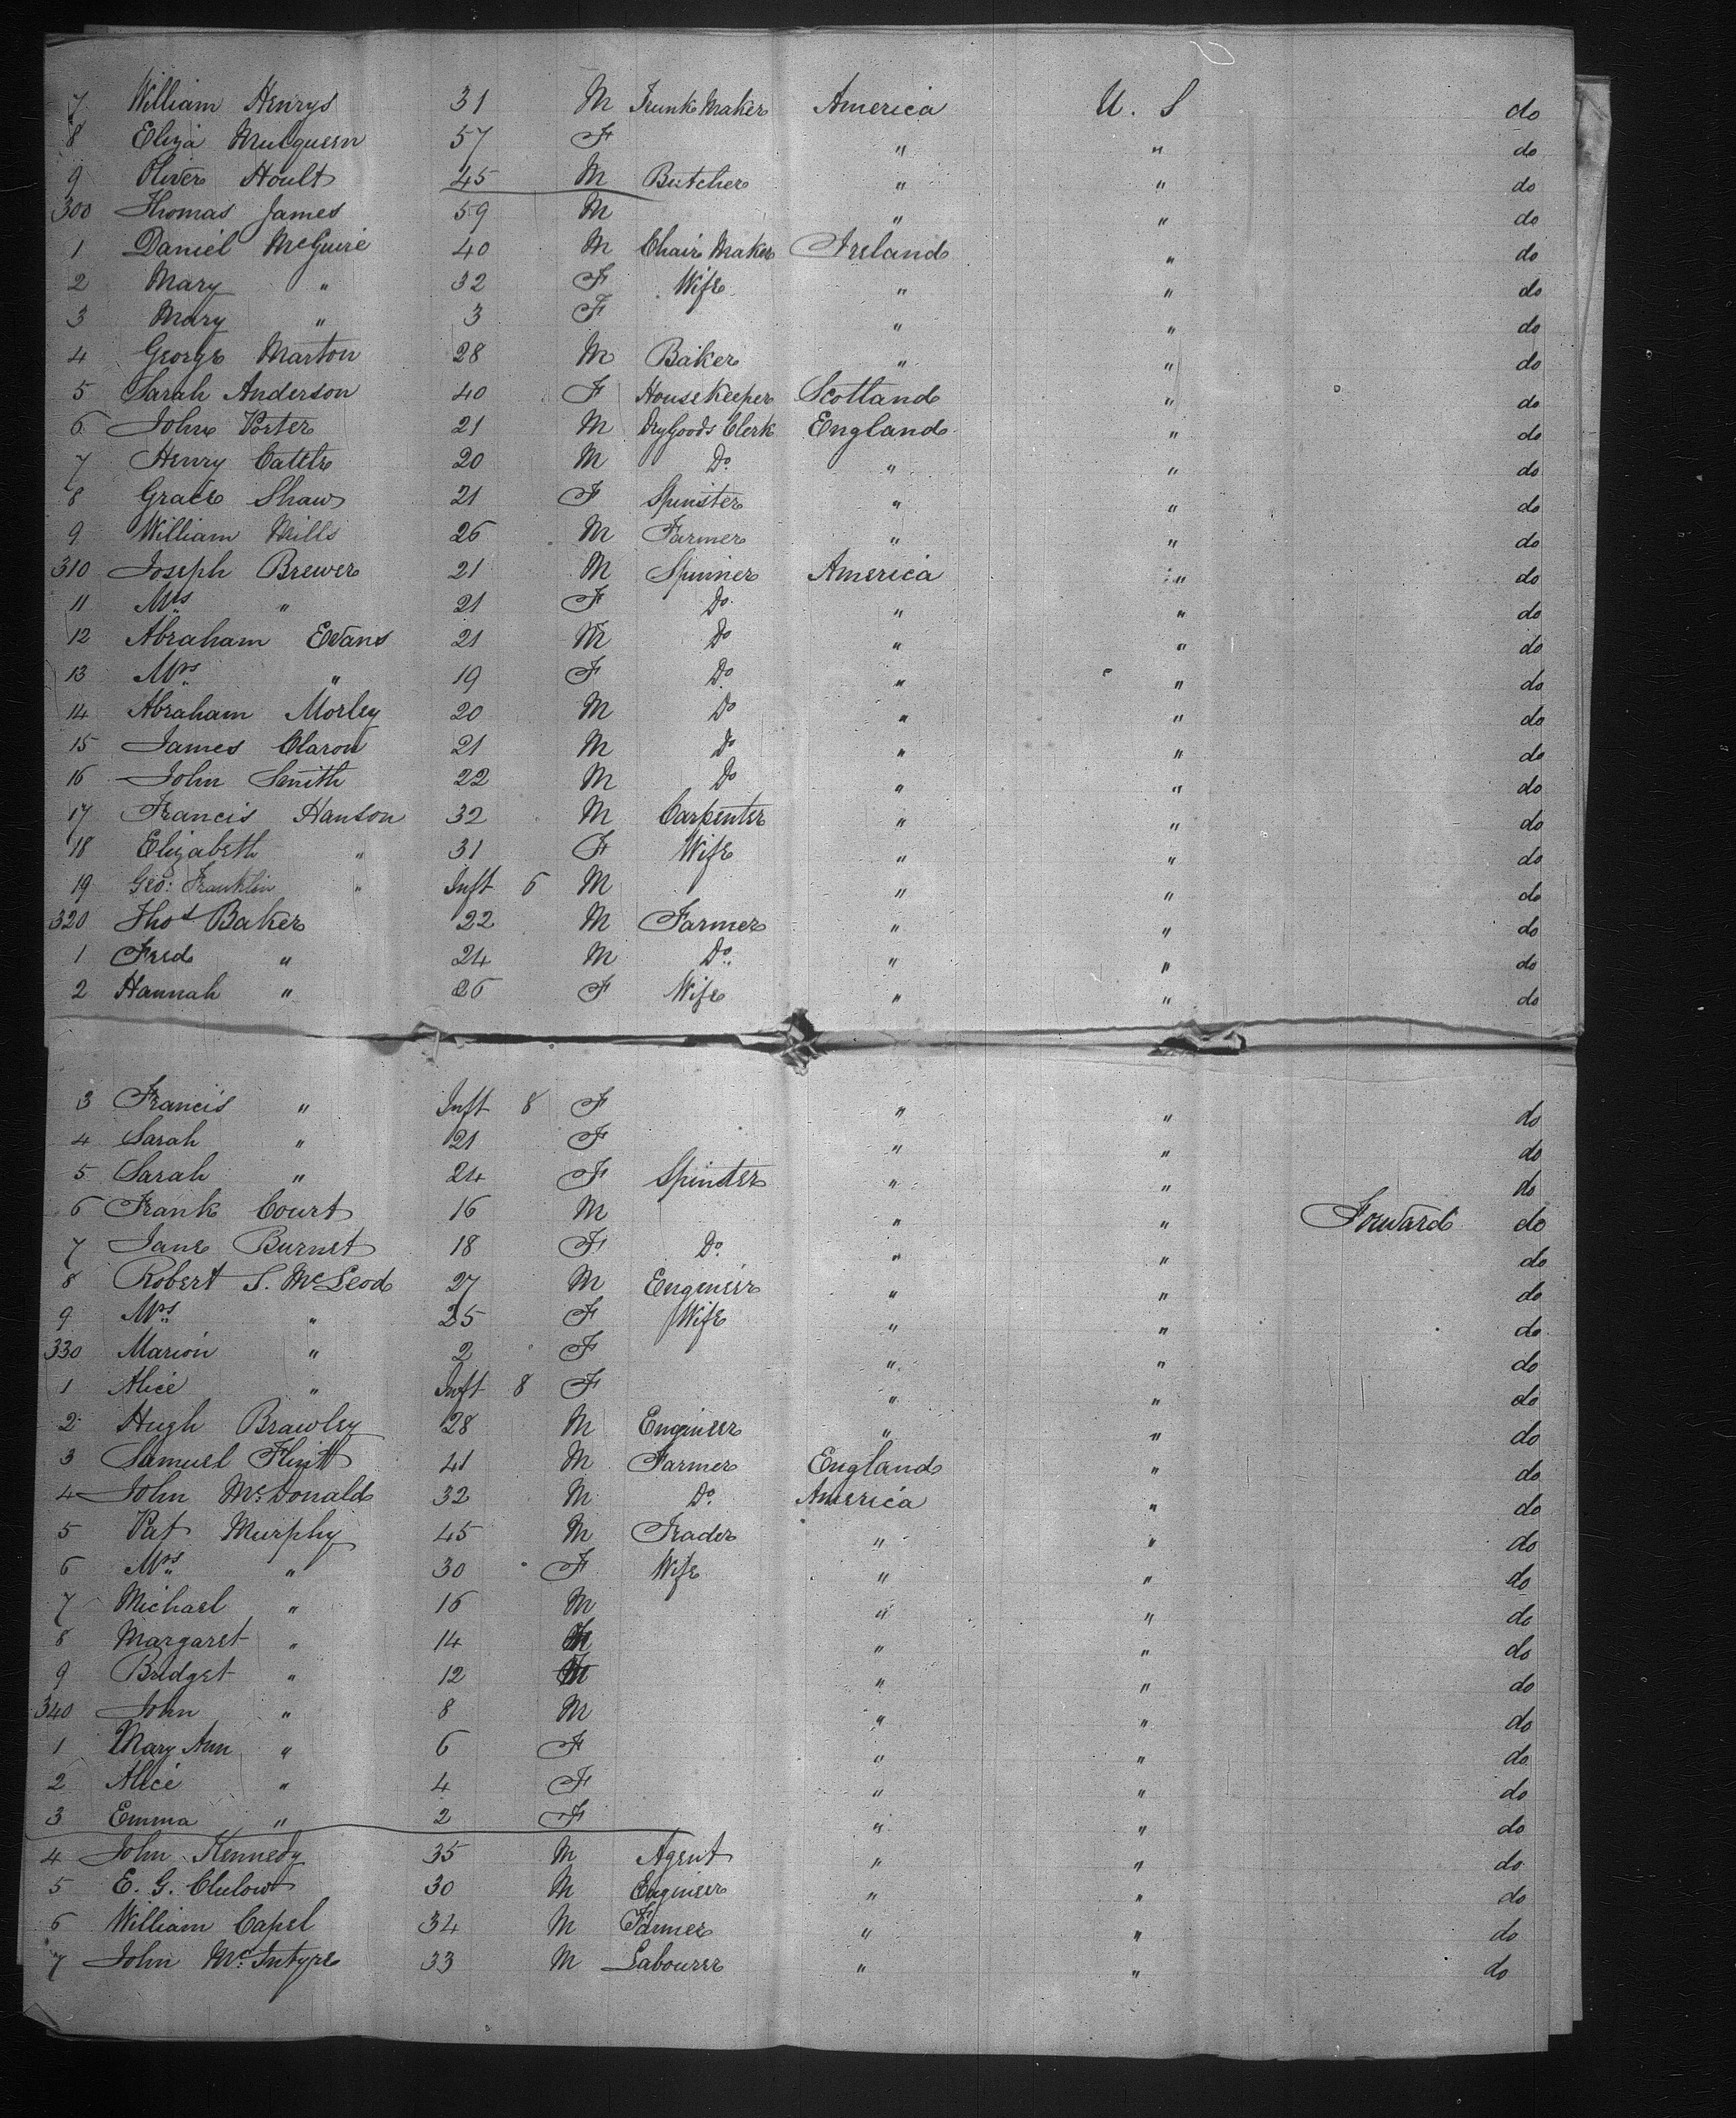 7 William Henrys 31 M Trunk Maker America U. S do
8 Eliza Mulqueen 57 F " " do
9 Oliver Hoult 45 M Butcher " " do
300 Thomas James 59 M " " do
1 Daniel McGuire 40 M Chair Maker Ireland " do
2 Mary " 32 F Wife " " do
3 Mary " 3 F " " do
4 George Marton 28 M Baker " " do
5 Sarah Anderson 40 F HouseKeeper Scotland " do
6 John Porter 21 M DryGoods Clerk England " do
7 Henry Cattle 20 M Do " " do
8 Grace Shaw 21 F Spinster " " do
9 William Mills 26 M Farmer " " do
310 Joseph Brewer 21 M Spinner America " do
11 Mrs " 21 F Do " " do
12 Abraham Evans 21 M Do " " do
13 Mrs " 19 F Do " " do
14 Abraham Morley 20 M Do " " do
15 James Claron 21 M Do " " do
16 John Smith 22 M Do " " do
17 Francis Hanson 32 M Carpenter " " do
18 Elizabeth " 31 F Wife " " do
19 Geo: Franklin " Inft 6 M " " do
320 Thos Baker 22 M Farmer " " do
1 Fred " 24 M Do " " do
2 Hannah " 26 F Wife " " do
3 Francis " Inft 8 F " " do
4 Sarah " 21 F " " do
5 Sarah " 24 F Spinster " " do
6 Frank Court 16 M " " Forward do
7 Jane Burnet 18 F Do " " do
8 Robert S. McLeod 27 M Engineer " " do
9 Mrs " 25 F Wife " " do
330 Marion " 2 F " " do
1 Alice " Inft 8 F " " do
2 Hugh Brawley 28 M Engineer " " do
3 Samuel Flintt 41 M Farmer England " do
4 John McDonald 32 M Do America " do
5 Pat Murphy 45 M Trader " " do
6 Mrs " 30 F Wife " " do
7 Michael " 16 M " " do
8 Margaret " 14 " " do
9 Bridget " 12 " " do
340 John " 8 M " " do
1 Mary Ann " 6 F " " do
2 Alice " 4 F " " do
3 Emma " 2 F " " do
4 John Kennedy 35 M Agent " " do
5 E. G. Clulow 30 M Engineer " " do
6 William Capel 34 M Farmer " " do
7 John McIntyre 33 M Labourer " " do